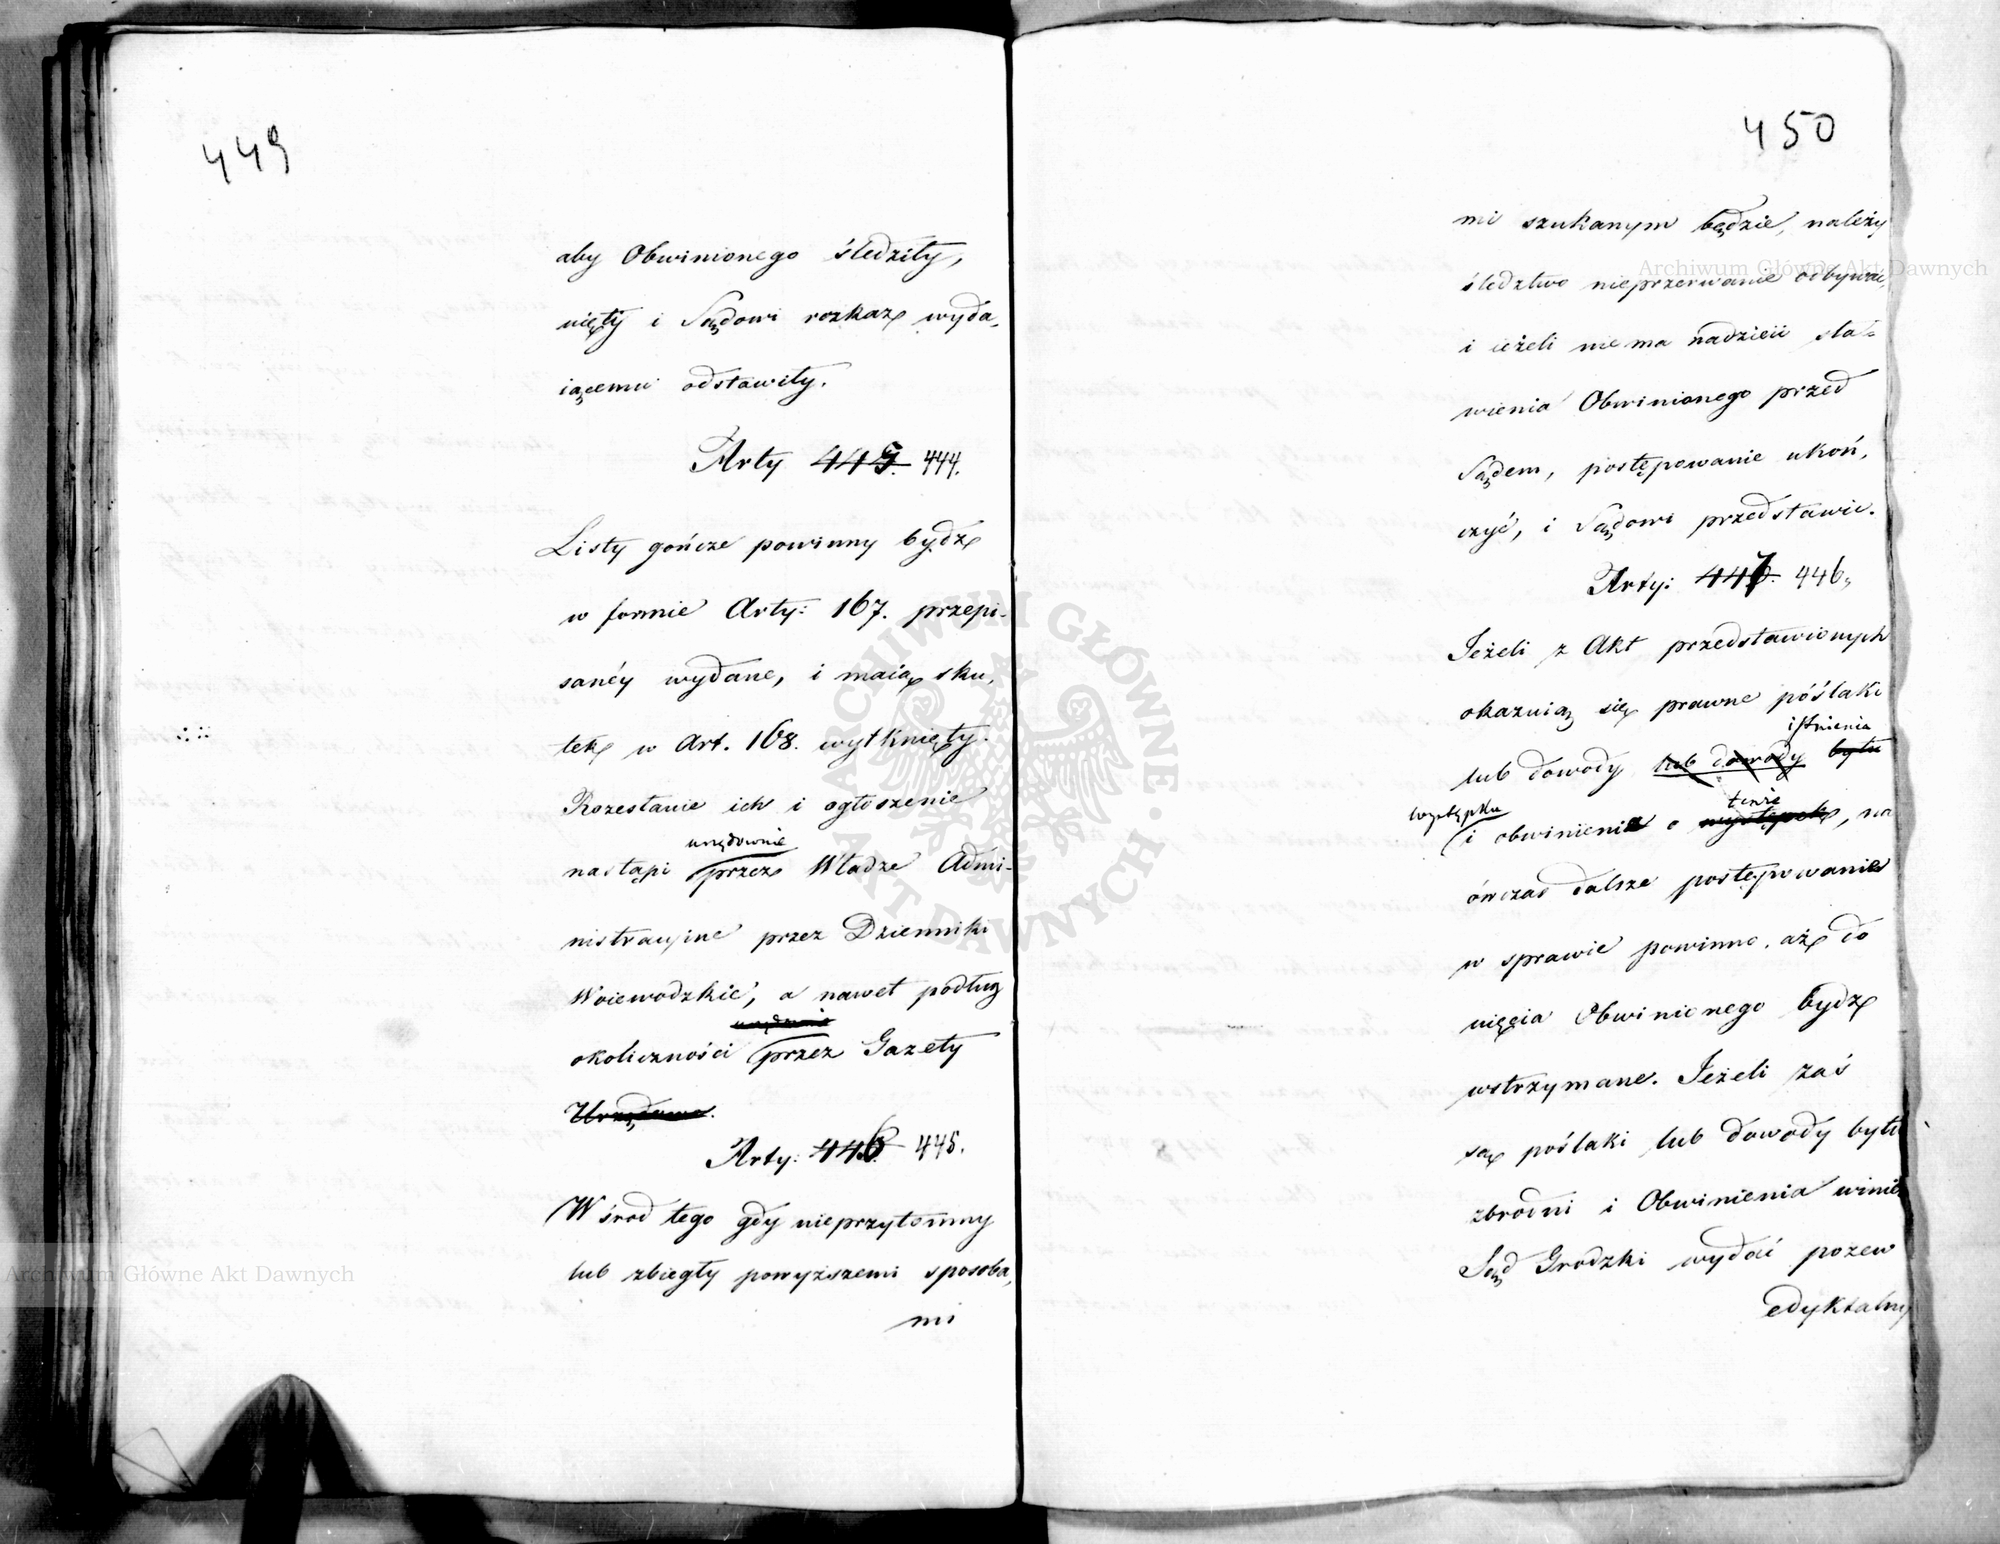 449
aby Obwinionego śledziły,
uięty i Sądowi rozkaz wyda,
iącemu odstawiły.
Arty 445. 444.
Listy gończe powinny bydź
w formie Arty: 167. przepi-
sanéy wydane, i maią sku,
tek w Art. 168. wytknięty.
Rozesłanie ich i ogłoszenie
urzędownie
nastąpi przez Władze Admi-
nistracyine przez Dzienniki
Woiewodzkie, a nawet podług
urzędownie
okoliczności przez Gazety
Urzędowe.
Arty: 446. 445.
W środ tego gdy nieprzytomny
lub zbiegły powyższemi sposoba,
mi
450
mi szukanym będzie, należy
śledztwo nieprzerwanie odbywać,
i ieżeli niema nadzieii sta-
wienia Obwinionego przed
Sądem, postępowanie ukoń,
czyć, i Sądowi przedstawić.
Arty: 447. 446.
Jeżeli z Akt przedstawionych
okazuią się prawne póślaki
istnienia
lub dowody lub dowody bytu
występku tenże
i obwinienia o występek, na
ówczas dalsze postępowanie
w sprawie powinno, aż do
uięcia Obwinionego bydź
wstrzymane. Jeżeli zaś
są poślaki lub dowody bytu
zbrodni i Obwinienia winien
Sąd Grodzki wydać pozew
edyktalny
Archiwum Główne Akt Dawnych
Archiwum Główne Akt Dawnych
ARCHIWUM GŁÓWNE · AKT DAWNYCH ·